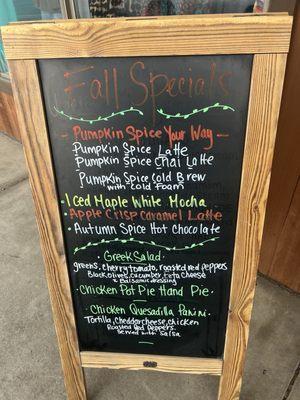 Fall Specials
- Pumpkin Spice Your Way -
Pumpkin Spice Latte
Pumpkin Spice Chai Latte
Pumpkin Spice Cold Brew
with Cold Foam
Iced Maple White Mocha
Apple Crisp Caramel Latte
Autumn Spice Hot Chocolate
Greek Salad
greens, cherry tomato, roasted red peppers
Black olives, cucumber, feta cheese
& Balsamic dressing
Chicken Pot Pie Hand Pie
Chicken Quesadilla Panini
Tortilla, cheddar cheese, chicken
Roasted Red Peppers.
served with salsa